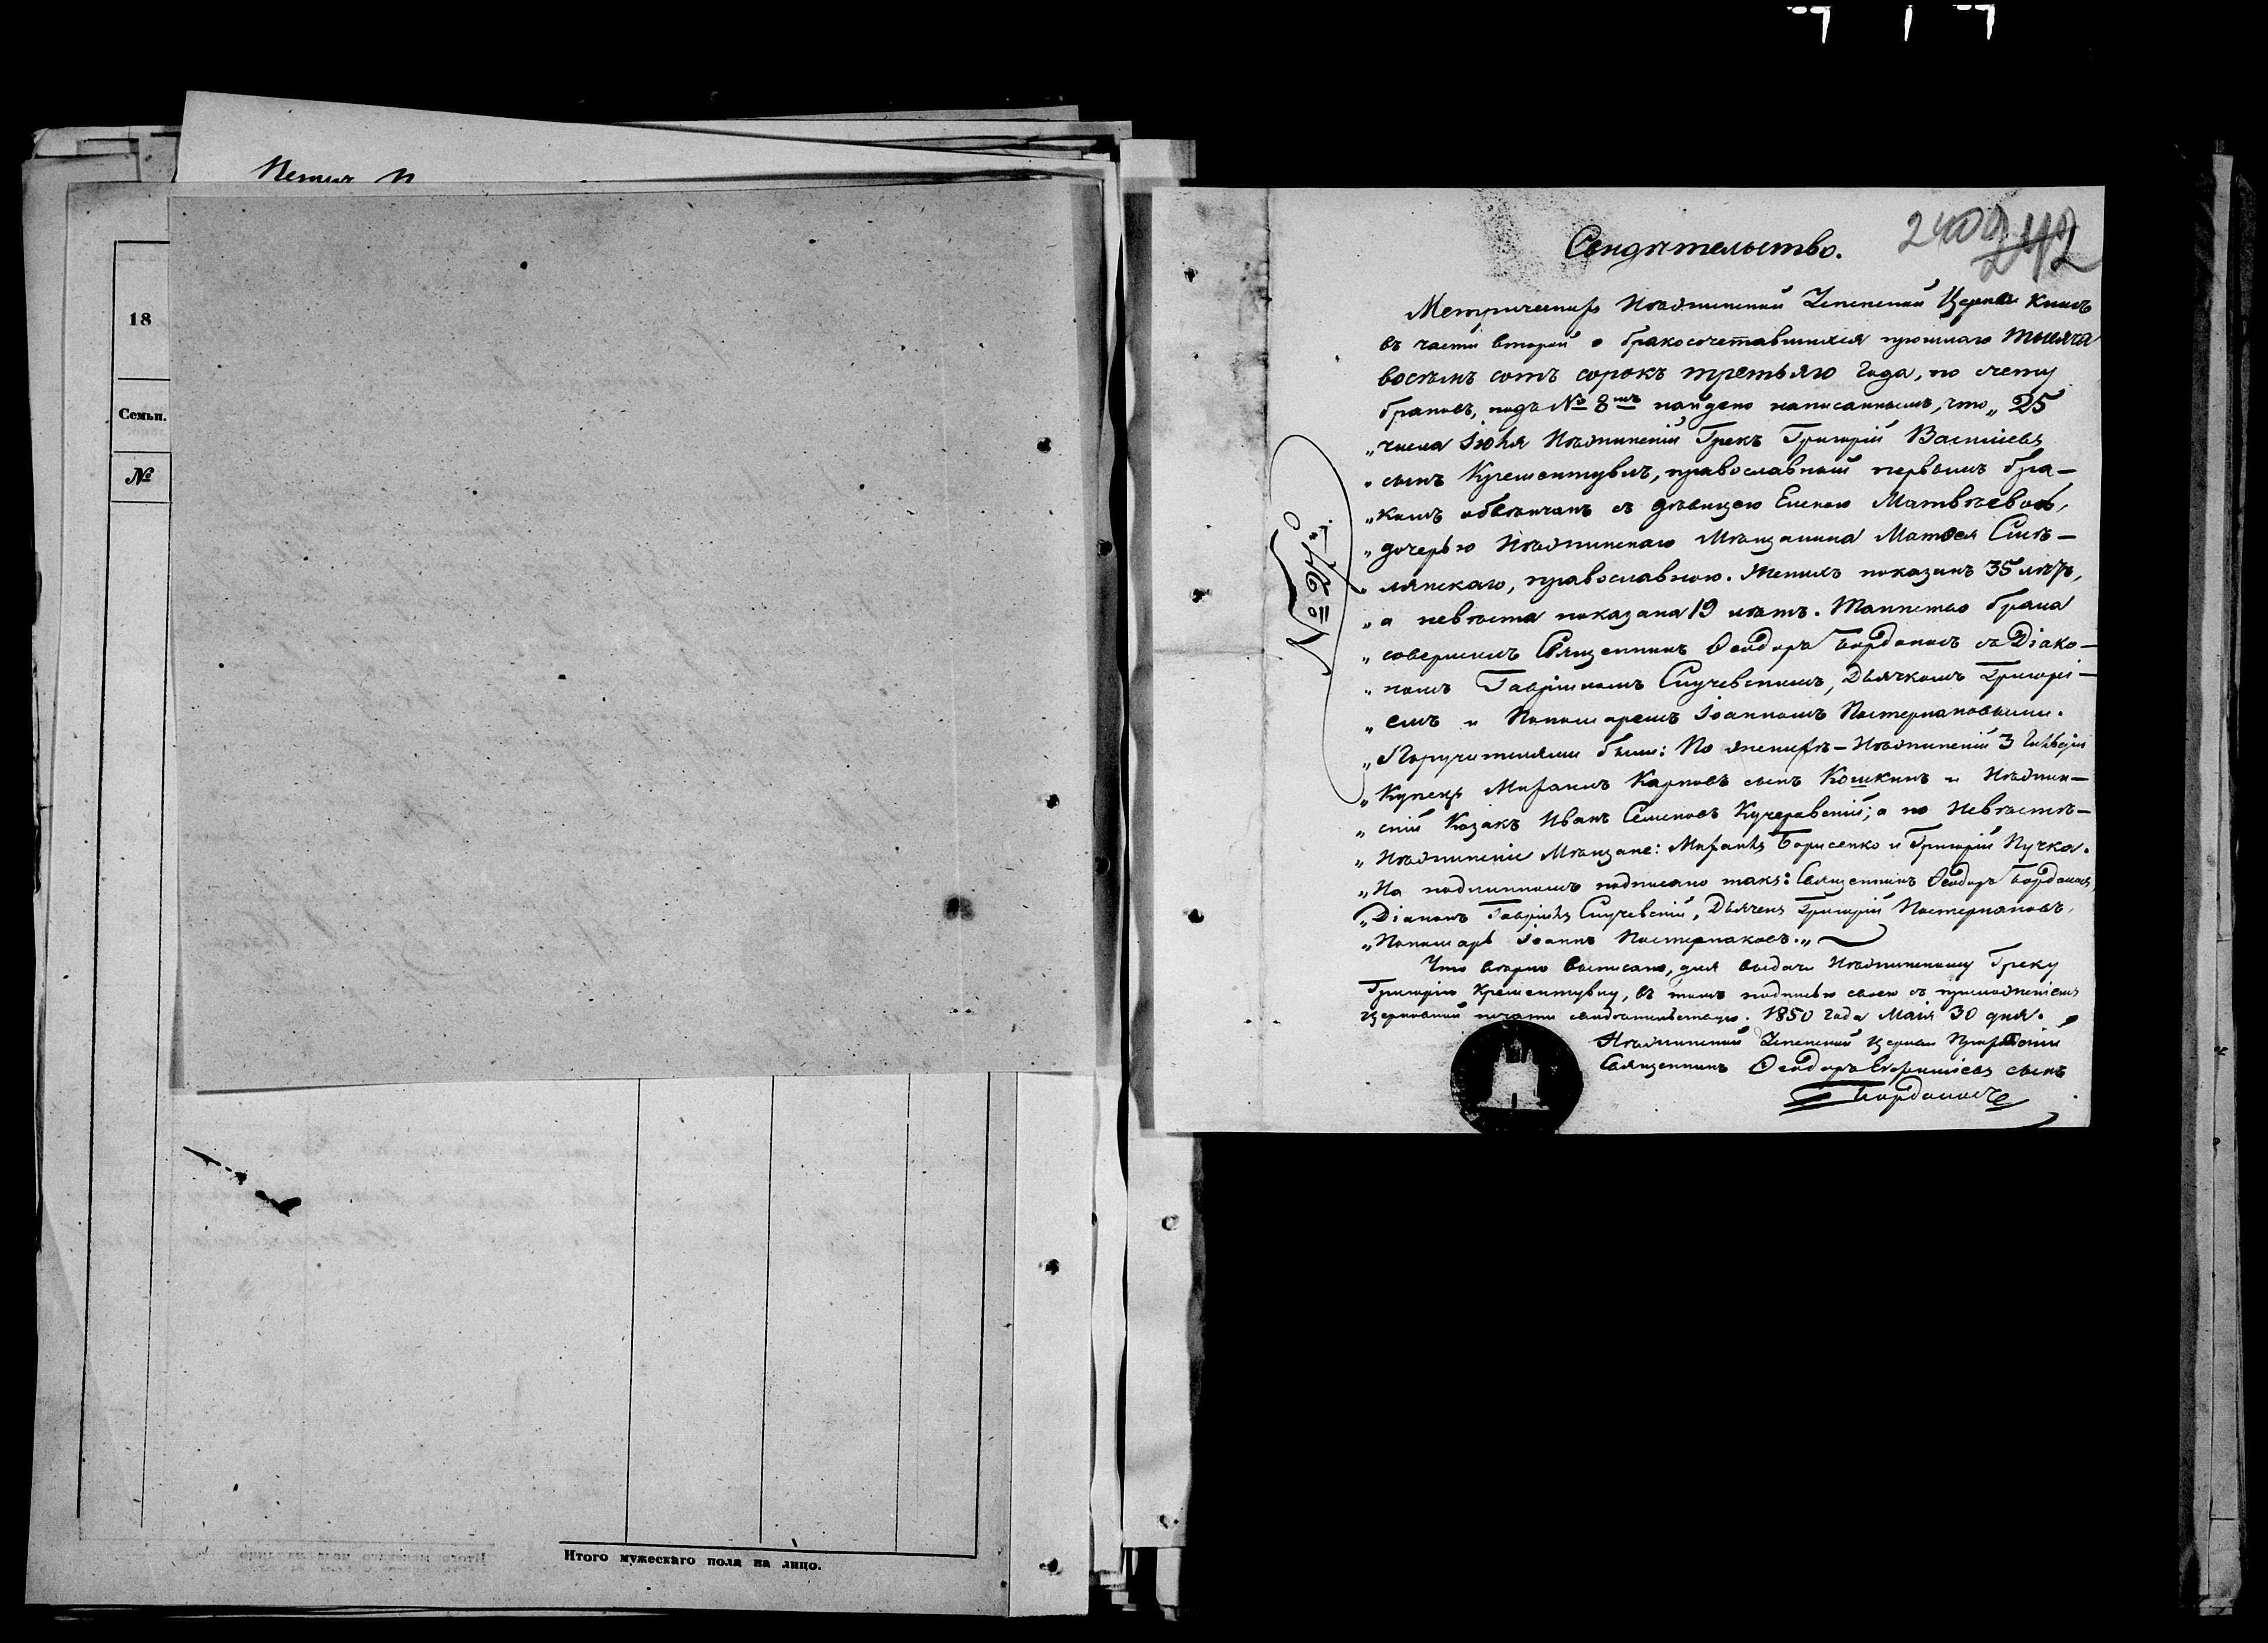 Петръ
18
Семьи.
№
Итого мужескаго пола на лицо.
2409 242
Свидѣтельство.
Метрической Нѣжинской Успенской Церкви книгѣ
въ части второй о бракосочетавшихся прошлаго тысяча
восѣмъ сотъ сорокъ третьяго года, по счету
браковъ, подъ № 8мъ найдено написаннымъ, что „25
„числа Іюля Нѣжинскій Грекъ Григорій Васильевъ
„сынъ Крементувъ, православный первымъ бра–
„комъ обвѣнчанъ съ дѣвицею Еленою Матвѣевою,
„дочерью Нѣжинскаго Мѣщанина Матвея Смѣ–
„лянскаго, православною. Женихъ показанъ 35 лѣтъ,
„а невѣста показана 19 лѣтъ. Таинство брака
„совершилъ Священникъ Ѳеодоръ Бордоносъ съ Діако–
„номъ Гавріиломъ Случевскимъ, Дьячкомъ Григорі–
„емъ и Пономаремъ Іоанномъ Постернаковыми.
„Поручителями были: По женихѣ – Нѣжинскій 3 Гильдіи
„Купецъ Михаилъ Карповъ сынъ Кошкинъ и Нѣжин–
„скій Козакъ Иванъ Семеновъ Кучеровскій; а по Невѣстѣ –
„Нѣжинскіе Мѣщане: Михаилъ Борисенко и Григорій Пучка.
„На подлинномъ подписано такъ: Священникъ Ѳеодоръ Бордоносъ,
„Діаконъ Гавріилъ Случевскій, Дьячекъ Григорій Постернаковъ,
„Пономарь Іоаннъ Постернаковъ.„
Что вѣрно выписано, для выдачи Нѣжинскому Греку
Григорію Крементуву, въ томъ подписью своею съ приложеніемъ
церковной печати свидѣтельствую. 1850 года Маія 30 дня.
Нѣжинской Успенской Церкви
Священникъ Ѳеодоръ сынъ
Бордоносъ
№ 27й.